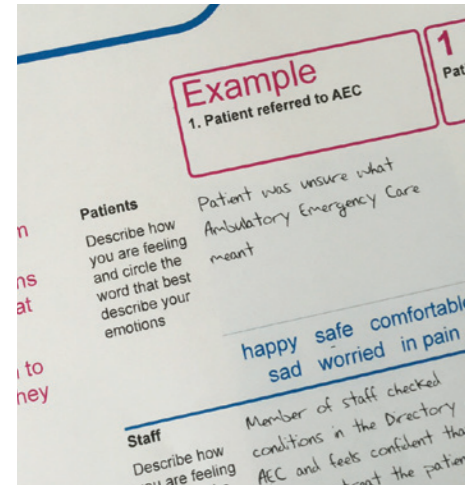 Example
1. Patient referred to AEC
1
Pat
Patients
Describe how
you are feeling
and circle the
word that best
describe your
emotions
Patient was unsure what
Ambulatory Emergency Care
meant
ns
at
to
ney
happy safe comfortable
sad worried in pain
Staff
Describe how
you are feeling
Member of staff checked
conditions in the Directory
AEC and feels confident tha
the patien